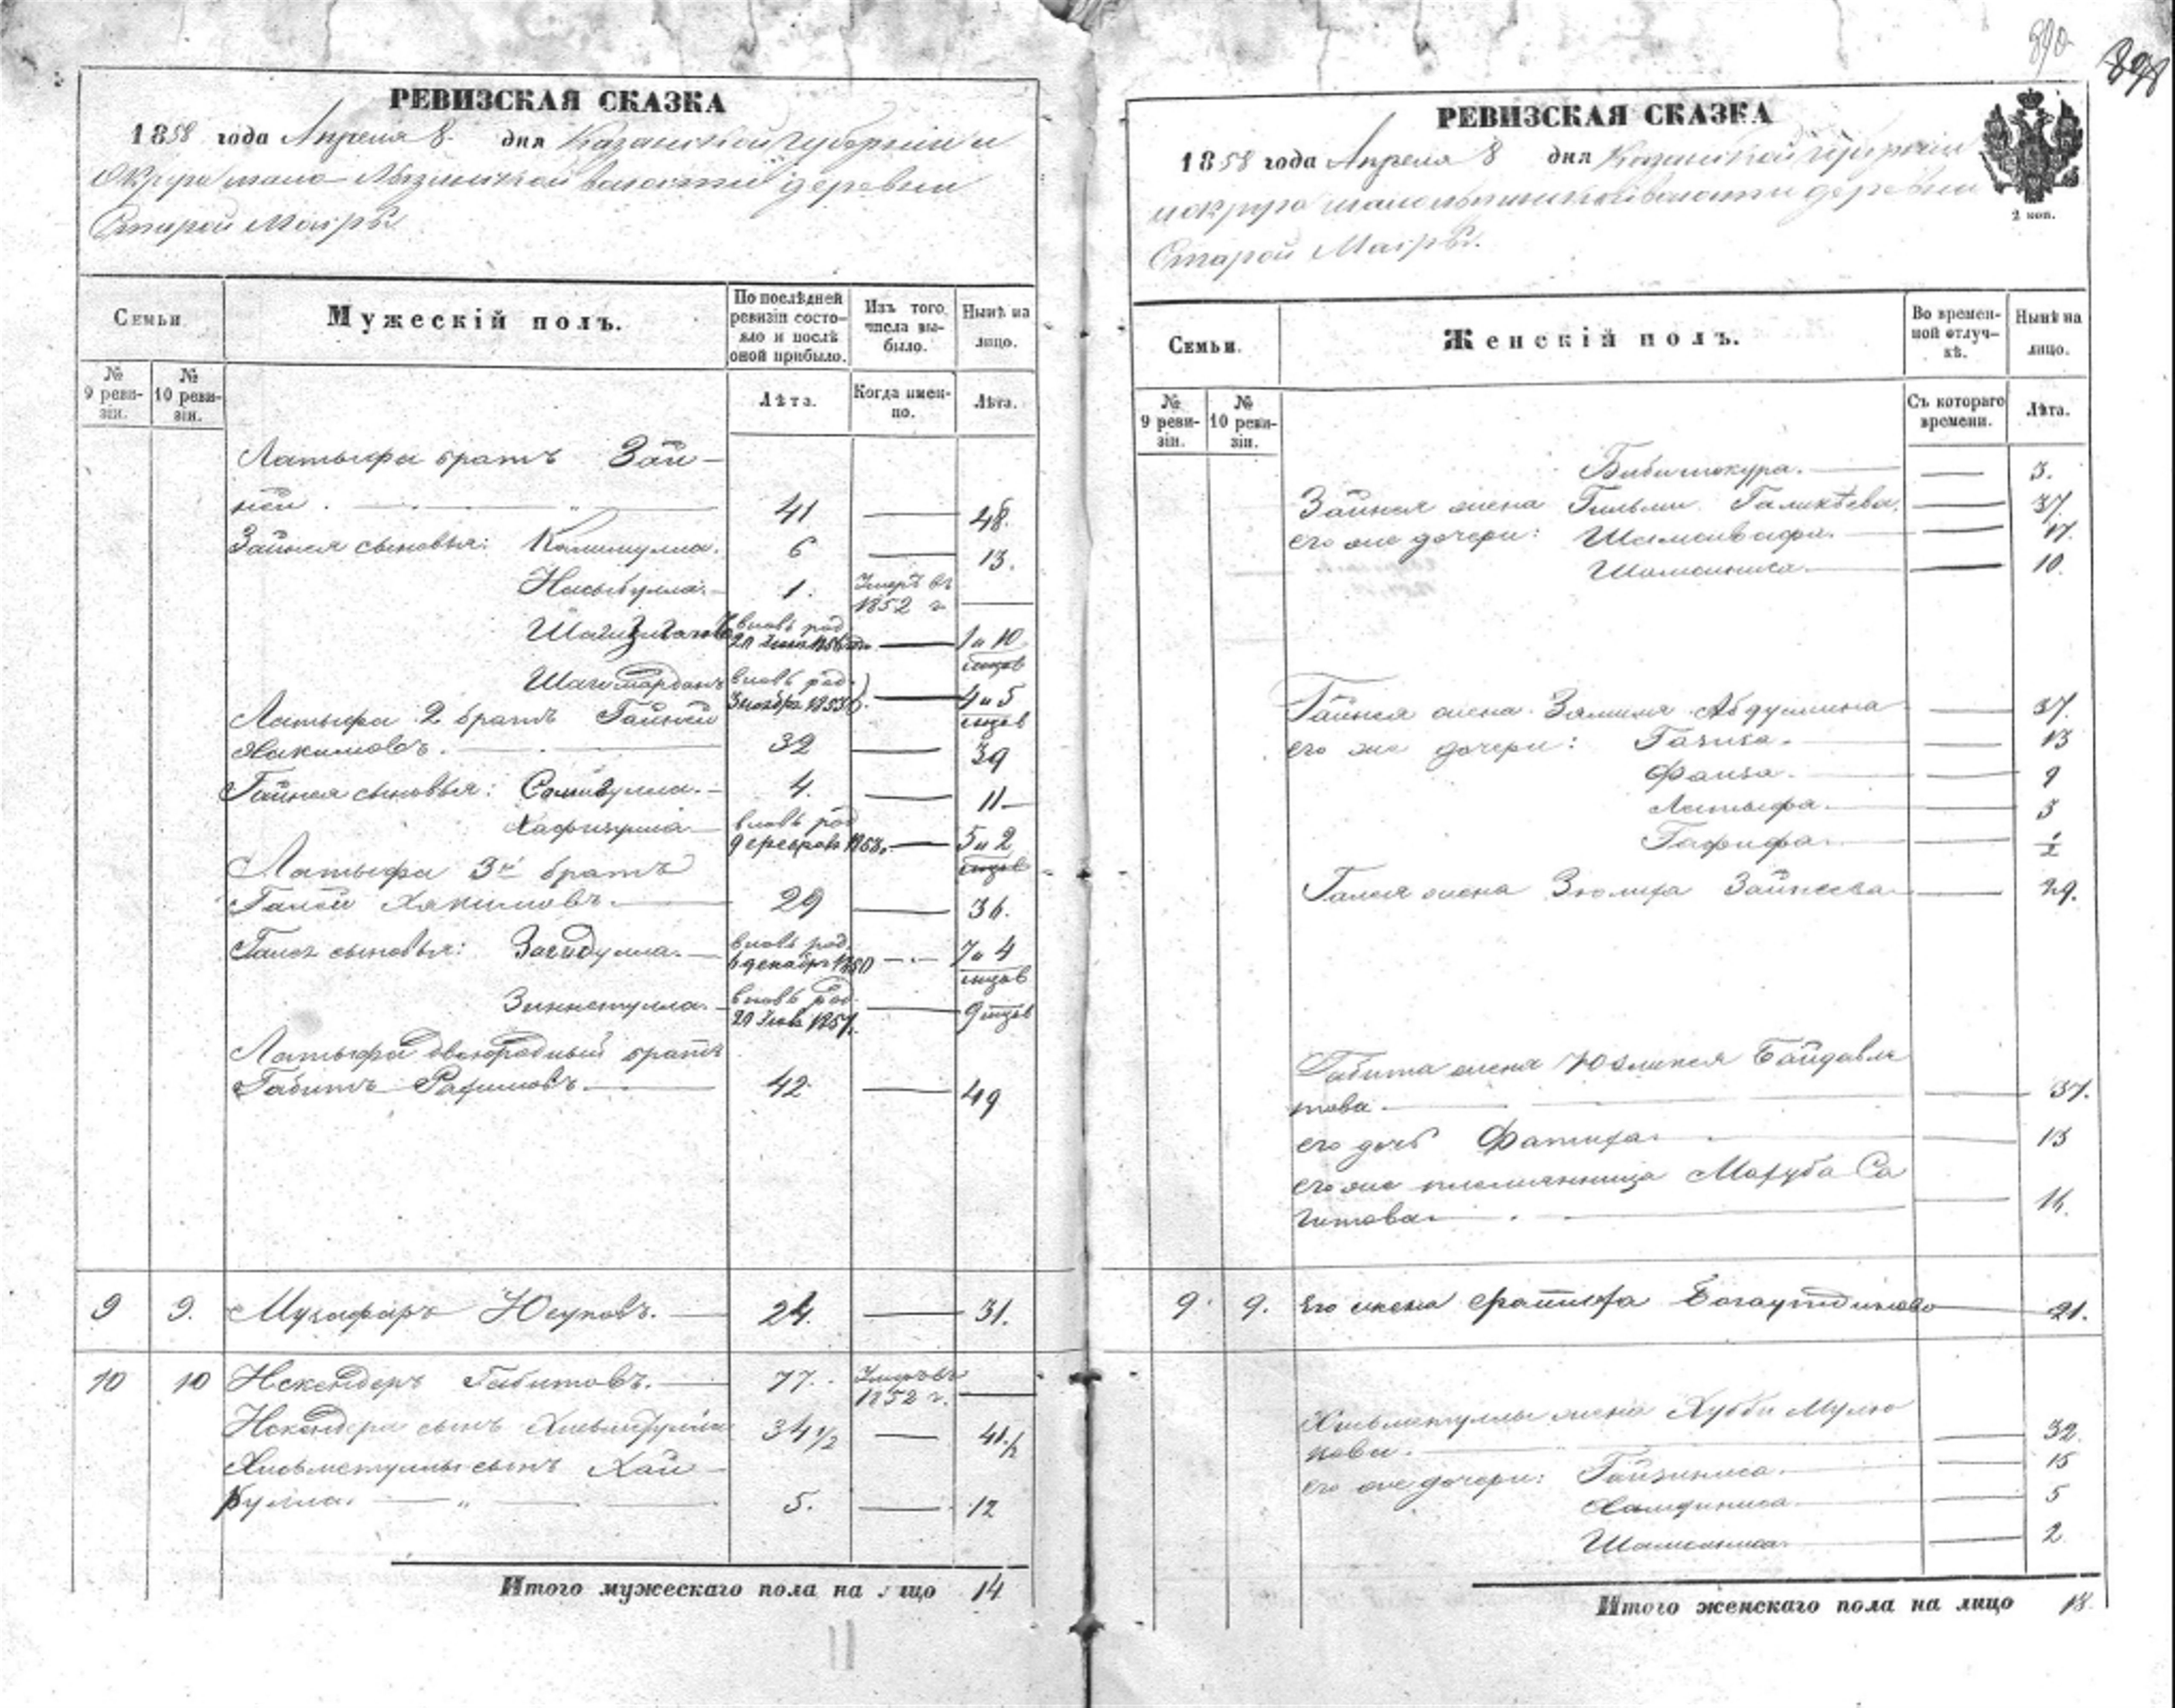 890
898
РЕВИЗСКАЯ СКАЗКА
1858 года Апреля 8 дня Казанской губернии и
округа мало- волости деревни
Старой Масры
Семьи
Мужескій полъ.
По послѣдней ревизіи состояло и послѣ оной прибыло.
Изъ того числа выбыло.
Нынѣ на лицо.
№ 9 ревизіи.
№ 10 ревизіи.
Лѣта.
Когда именно.
Лѣта.
Латыфа братъ Зай-
ней. 41 48.
Зайнея сыновья: Калимулла. 6 13.
Насыбулла. 1. Умеръ въ 1852 г.
вновь род. 1 и 10 мцов
Шагимарданъ вновь род. 3 ноября 1853 4 и 5 мцов
Латыфа 2 братъ Гайней
Хакимовъ. 32 39
Гайнея сыновья: 4. 11
Хафизулла вновь род 5 и 2 мцов
Латыфа 3й братъ
Галей Хакимовъ. 29 36.
Галея сыновья: Загидулла. вновь род. 6 декабр 1850 7 и 4 мцов
Зиннетулла. вновь род. 1857. 9 мцов
Латыфа двоюродный братъ
Габитъ Рафиковъ. 42 49
9 9. Музафаръ Юсуповъ. 24. 31.
10 10 Искендеръ Габитовъ. 77. Умеръ въ 1852 г.
Искендера сынъ Хисьметулла 34 1/2 41 1/2
Хисьметуллы сынъ Хай-
булла. 5. 12
Итого мужескаго пола на лицо 14
РЕВИЗСКАЯ СКАЗКА
1858 года Апреля 8 дня Казанской губерніи
и округа волости деревни
Старой Масры.
2 коп.
Семьи.
Женскій полъ.
Во временной отлучкѣ.
Нынѣ на лицо.
№ 9 ревизіи.
№ 10 ревизіи.
Съ котораго времени.
Лѣта.
3.
Зайнея жена Гильми Галикѣева. 37.
его же дочери: 17.
Шамсиниса. 10.
Гайнея жена Абдуллина 37.
его же дочери: Газиза. 13
Фаиза. 9
Латыфа. 3
Гафифа 1/2
Галея жена Зюлифа Зайнеева 29.
Габита жена Байдавле
това. 37.
его дочь Фатифа. 13
его же племянница Махуба Са
гитова. 16.
9. 9. Его жена Фатифа Богаутдинова 21.
Хисьметуллы жена Хубби Мулю
кова. 32.
его же дочери: Гайзиниса. 15
Хамдиниса. 5
Шамсиниса. 2
Итого женскаго пола на лицо 18.